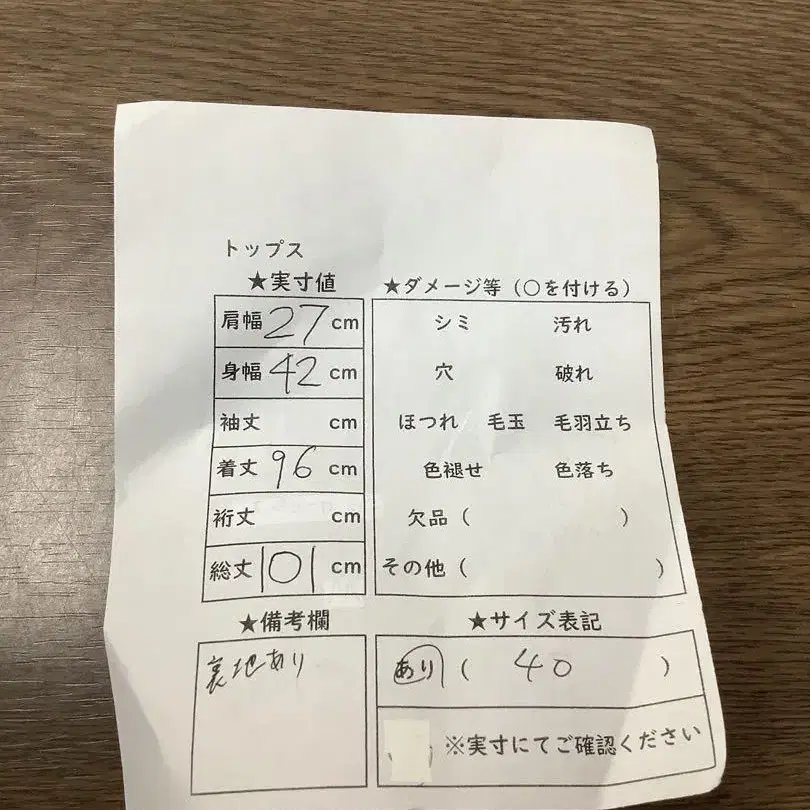 トップス
★実寸値
肩幅 27 cm
身幅 42 cm
袖丈 cm
着丈 96 cm
裄丈 cm
総丈 101 cm
★ダメージ等（○を付ける）
シミ 汚れ
穴 破れ
ほつれ 毛玉 毛羽立ち
色褪せ 色落ち
欠品（ ）
その他（ ）
★備考欄
裏地あり
★サイズ表記
あり（ 40 ）
※実寸にてご確認ください